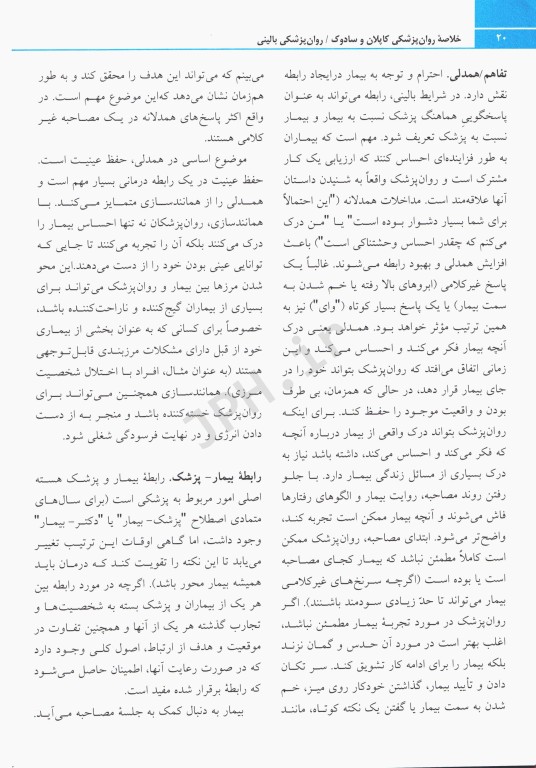 ۲۰ خلاصهٔ روان‌پزشکی کاپلان و سادوک / روان‌پزشکی بالینی
تفاهم/همدلی. احترام و توجه به بیمار درایجاد رابطه
نقش دارد. در شرایط بالینی، رابطه می‌تواند به عنـوان
پاسخگویی هماهنگ پزشک نسبت به بیمار و بیمـار
نسبت به پزشک تعریف شود. مهم است که بیمـاران
به طور فزاینده‌ای احساس کنند که ارزیابی یک کـار
مشترک است و روان‌پزشک واقعاً به شنیدن داستان
آنها علاقه‌مند است. مداخلات همدلانه ("این احتمالاً
برای شما بسیار دشـوار بـوده اسـت" یـا "مـن درک
می‌کنم که چقدر احساس وحشتناکی اسـت") باعـث
افزایش همدلی و بهبود رابطه مـی‌شـوند. غالبـاً یـک
پاسخ غیرکلامی (ابروهای بالا رفته یا خـم شـدن بـه
سمت بیمار) یا یک پاسخ بسیار کوتاه ("وای") نیز به
همین ترتیب مؤثر خواهد بـود. همـدلی یعنـی درک
آنچه بیمار فکر می‌کنـد و احسـاس مـی‌کنـد و ایـن
زمانی اتفاق می‌افتد که روان‌پزشک بتواند خود را در
جای بیمار قرار دهد، در حالی که همزمان، بی طرف
بودن و واقعیت موجـود را حفـظ کنـد. بـرای اینکـه
روان‌پزشک بتواند درک واقعی از بیمار دربـاره آنچـه
که فکر می‌کند و احساس می‌کند، داشته باشد نیاز به
درک بسیاری از مسائل زندگی بیمـار دارد. بـا جلـو
رفتن روند مصاحبه، روایت بیمار و الگوهای رفتارها
فاش می‌شوند و آنچه بیمار ممکن است تجربه کنـد،
واضح‌تر می‌شود. ابتدای مصاحبه، روان‌پزشک ممکن
است کاملاً مطمئن نباشد که بیمـار کجـای مصـاحبه
است یا بوده اسـت (اگرچـه سـرنخ‌هـای غیرکلامـی
بیمار می‌تواند تا حدّ زیـادی سـودمند باشـنند). اگـر
روان‌پزشک در مورد تجربـهٔ بیمـار مطمـئن نباشـد،
اغلب بهتر است در مـورد آن حـدس و گمـان نزنـد
بلکه بیمار را برای ادامه کار تشویق کنـد. سـر تکـان
دادن و تأیید بیمار، گذاشتن خودکار روی میـز، خـم
شدن به سمت بیمار یا گفتن یک نکته کوتـاه، ماننـد
می‌بینم که می‌تواند این هدف را محقق کند و به طور
هم‌زمان نشان می‌دهد که‌این موضوع مهـم اسـت. در
واقع اکثر پاسخ‌های همدلانه در یـک مصـاحبه غیـر
کلامی هستند.
موضوع اساسی در همدلی، حفظ عینیـت اسـت.
حفظ عینیت در یک رابطه درمانی بسیار مهم است و
همـدلی را از هماننـدسـازی متمـایز مـی‌کنـد. بـا
همانندسازی، روان‌پزشکان نه تنها احساس بیمار را
درک می‌کنند بلکه آن را تجربه می‌کنند تا جایی کـه
توانایی عینی بودن خود را از دست می‌دهند.این محو
شدن مرزها بین بیمار و روان‌پزشک می‌توانـد بـرای
بسیاری از بیماران گیج‌کننده و ناراحت‌کننـده باشـد،
خصوصاً برای کسانی که به عنوان بخشی از بیمـاری
خود از قبل دارای مشکلات مرزبنـدی قابـل‌تـوجهی
هستند (به عنوان مثـال، افـراد بـا اخـتلال شخصـیت
مـرزی). همانندسـازی همچنـین مـی‌توانـد بـرای
روان‌پزشک خسته‌کننده باشـد و منجـر بـه از دسـت
دادن انرژی و در نهایت فرسودگی شغلی شود.
رابطهٔ بیمار- پزشک. رابطهٔ بیمـار و پزشـک هسـته
اصلی امور مربوط به پزشکی است (برای سـال‌هـای
متمادی اصطلاح "پزشک- بیمار" یا "دکتـر- بیمـار"
وجود داشت، اما گـاهی اوقـات ایـن ترتیـب تغییـر
می‌یابد تا این نکته را تقویـت کنـد کـه درمـان بایـد
همیشه بیمار محور باشد). اگرچه در مورد رابطه بین
هر یک از بیماران و پزشک بسته به شخصـیت‌هـا و
تجارب گذشته هر یک از آنها و همچنین تفـاوت در
موقعیت و هدف از ارتباط، اصول کلـی وجـود دارد
که در صورت رعایت آنها، اطمینان حاصل مـی‌شـود
که رابطهٔ برقرار شده مفید است.
بیمار به دنبال کمک به جلسهٔ مصـاحبه مـی‌آیـد.
JPH.ir